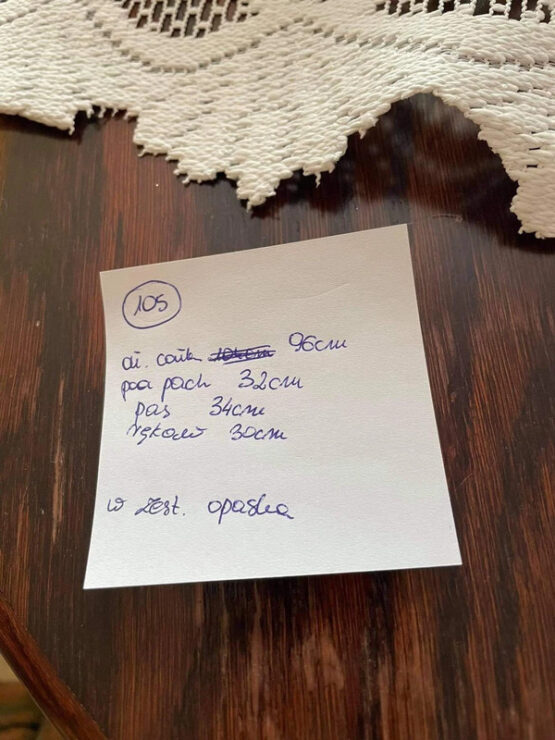 105
dł. całk 96cm
poa pach 32cm
pas 34cm
rękaw 30cm
w zest. opaska